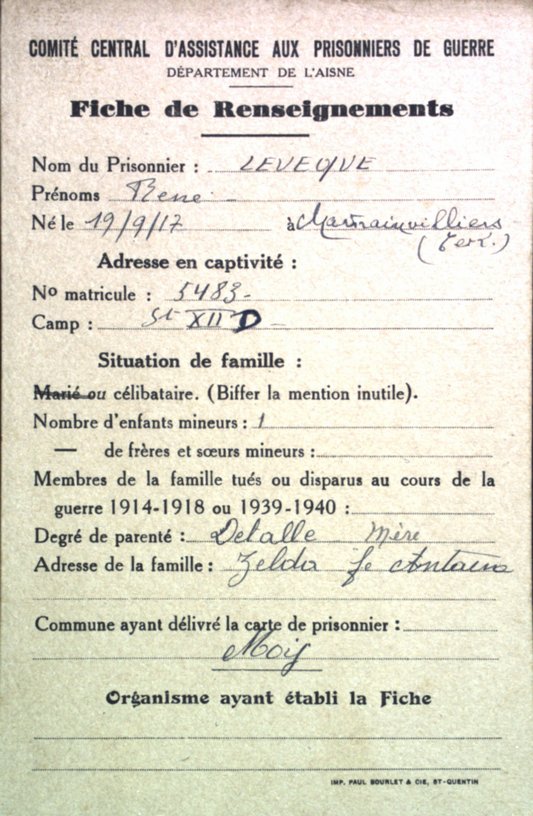 COMITÉ CENTRAL D'ASSISTANCE AUX PRISONNIERS DE GUERRE
DÉPARTEMENT DE L'AISNE
Fiche de Renseignements
Nom du Prisonnier : LEVEQUE
Prénoms René
Né le 19/9/17 à Martainvilliers
Adresse en captivité :
No matricule : 5483
Camp : St XII D
Situation de famille :
Marié ou célibataire. (Biffer la mention inutile).
Nombre d'enfants mineurs : 1
— de frères et sœurs mineurs :
Membres de la famille tués ou disparus au cours de la
guerre 1914-1918 ou 1939-1940 :
Degré de parenté : Detalle Mère
Adresse de la famille : Zelda fe
Commune ayant délivré la carte de prisonnier :
Moiy
Organisme ayant établi la Fiche
IMP. PAUL BOURLET & CIE, ST-QUENTIN